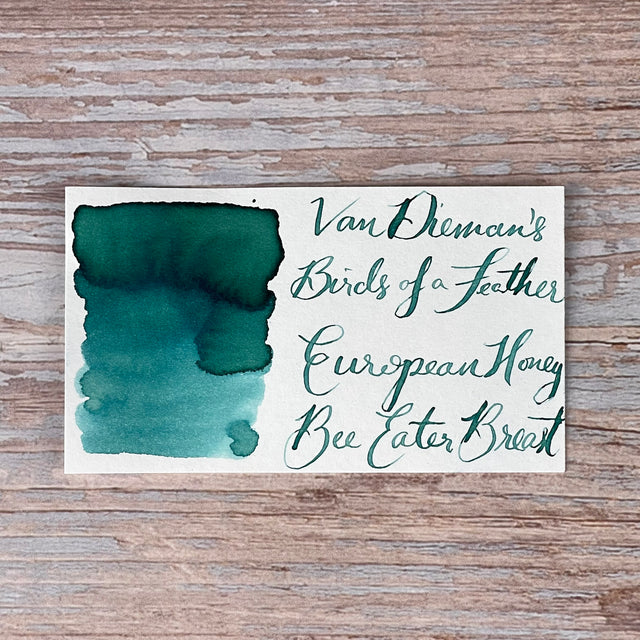 Van Dieman's
Birds of a Feather
European Honey
Bee Eater Breast